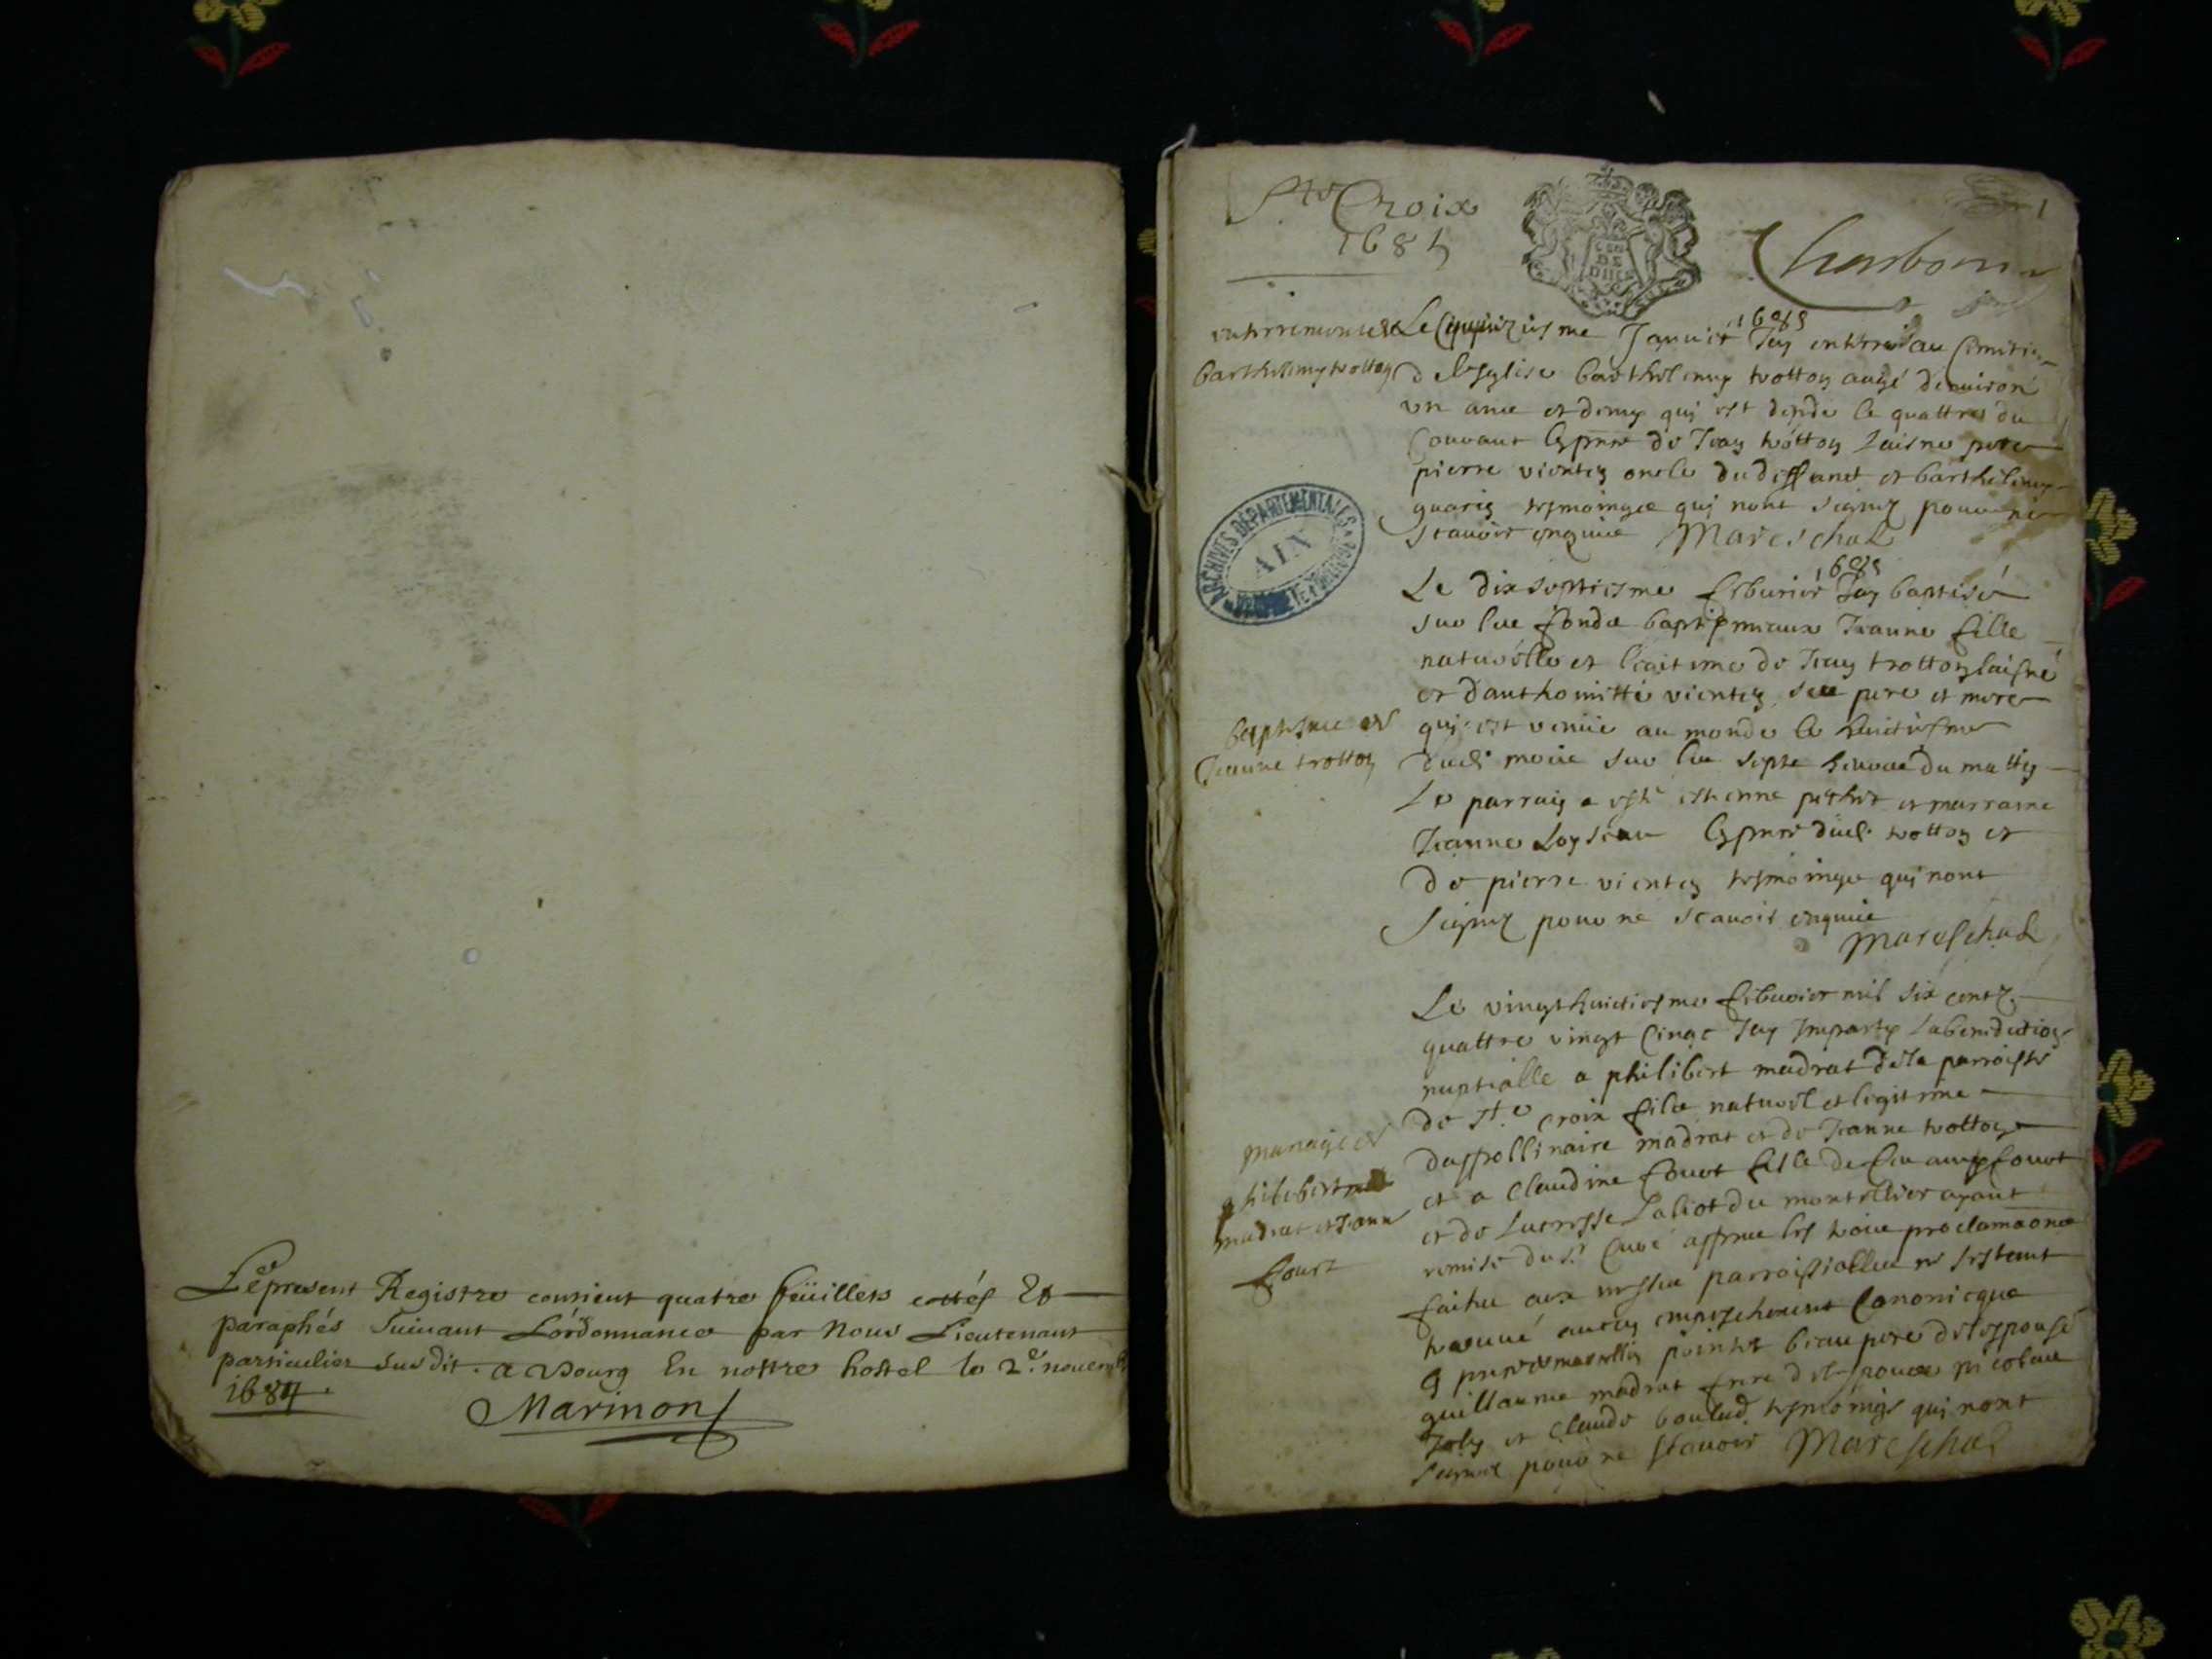 Le present Registre contient quatre feüillets cottés Et
paraphés Suiuant L'ordonnance par Nous Lieutenant
particulier susdit. a Bourg En nostre hostel le 2e. nouemb
1684.
Marinon
Ste Croix
1685
GEN
DE
DIION
Charbon
1
enterrement de
barthelemy trotton
Le cinquiesme Januier 1685 Jay enterré au cimitie
de leglise barthelemy trotton aagé denuiron
vn ans et demy qui est decedé le quattre du
courant es pnce de Jean trotton laisne pere
pierre vienten oncle du deffunct et barthelemy
tesmoings qui nont signez pour ne
scauoir enquis Mareschal
ARCHIVES DÉPARTEMENTALES
AIN
baptesme de
Jeanne trotton
Le dixseptiesme feburier 1685 Jay baptisé
sur les fonds baptismaux Jeanne fille
naturelle et legitime de Jean trotton laisné
et danthoinette vienten ses pere et mere
qui est venüe au monde le huictiesme
dudt mois sur les sept heures du mattin
Le parrain a esté estienne pethet et marraine
Jeanne Loyseau es pnce dudt trotton et
de pierre vienten tesmoings qui nont
signez pour ne scauoir enquis
Mareschal
mariage de
philibert
madrat et Jeanne
fouet
Le vingthuictiesme feburier mil six centz
quattre vingt cinqc Jay Imparty la benediction
nuptialle a philibert madrat de la parroisse
de Ste croix fils naturel et legitime
dappollinaire madrat et de Jeanne trotton
et a claudine fouet fille de feu aimé fouet
et de lucresse Laliot du montellier ayant
remise du sr curé appres les trois proclamaons
faites aux messes parroissialles ne sestant
trouué aucun empeschement canonicque
pointet beau pere de lespouse
guillaume madrat frere de lespoux nicolas
Joly et claude boulud tesmoings qui nont
signez pour ne scauoir Mareschal